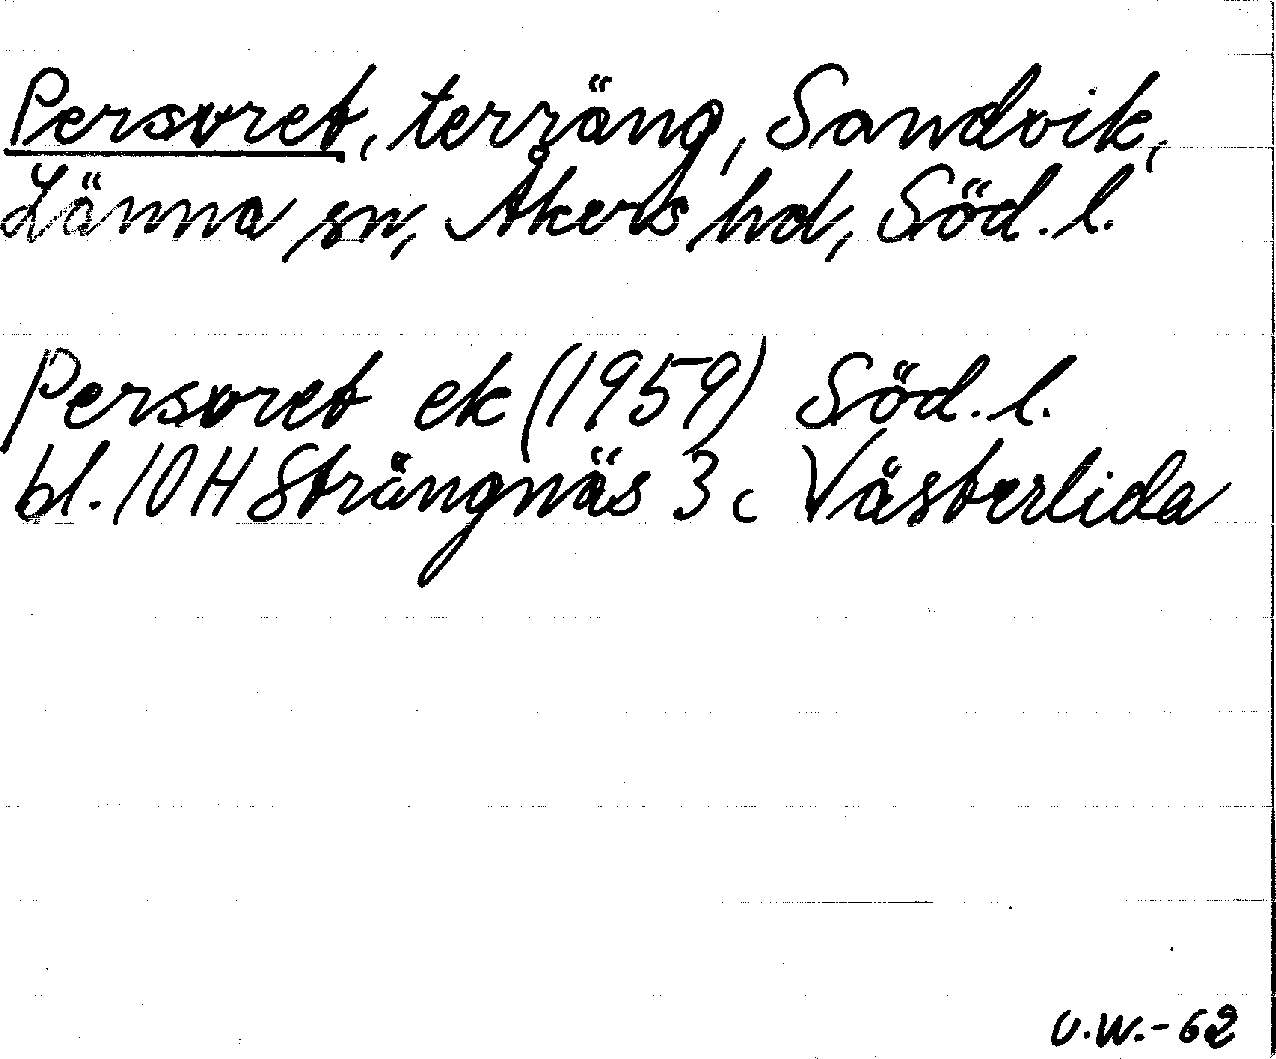 Persvret, terräng, Sandvik,
Länna sn, Åkers hd, Söd. l.
Persvret ek (1959) Söd. l.
bl. 10 H Strängnäs 3 c Västerlida
U.W.-62